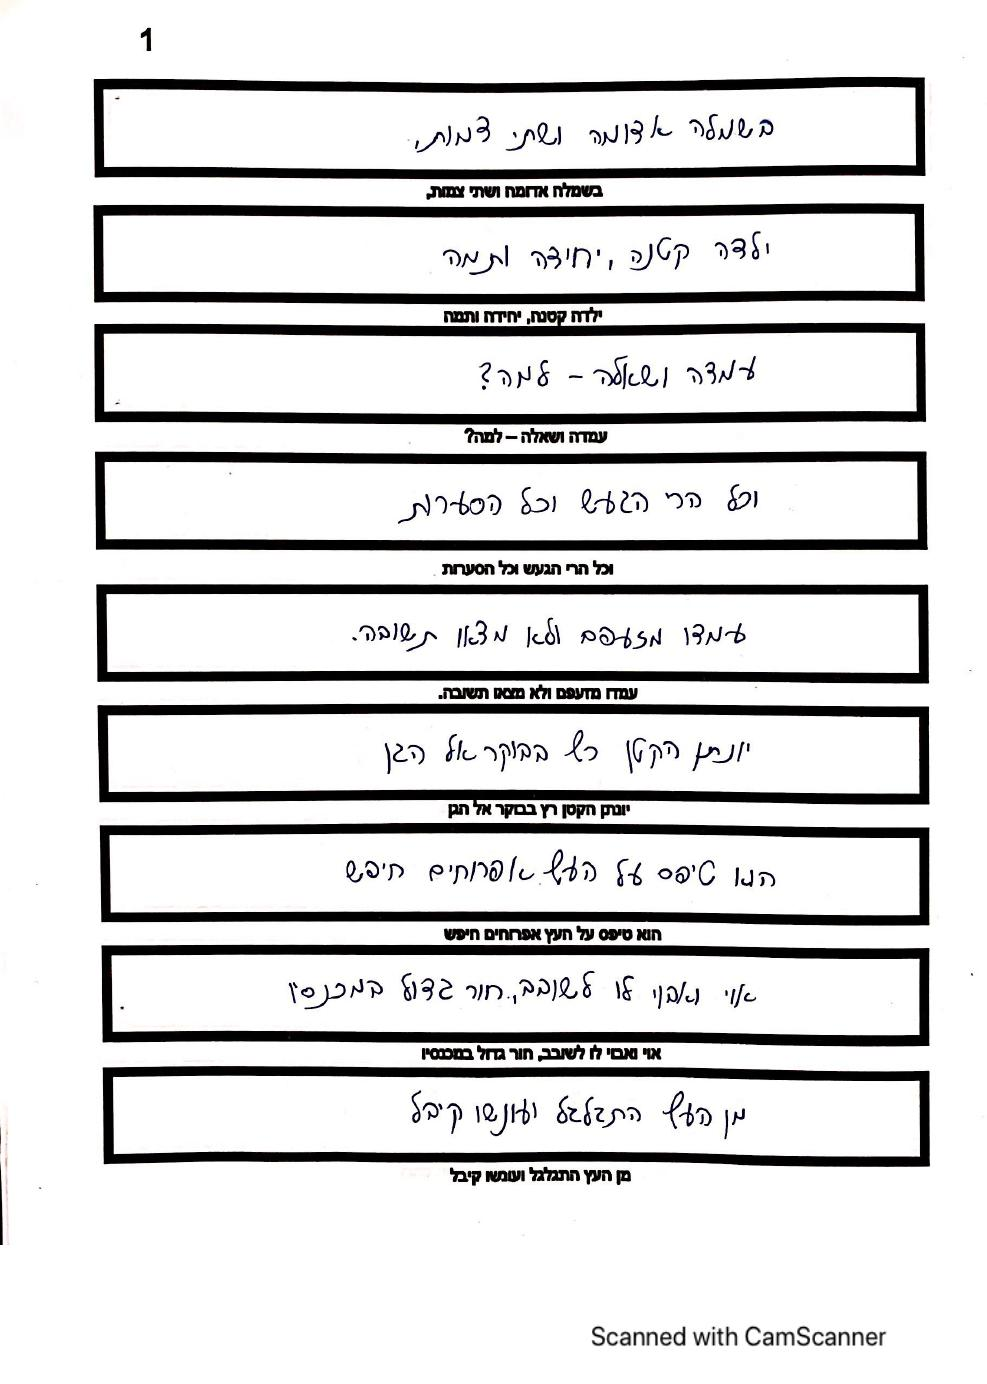 1
בשמלה אדומה ושתי צמות,
בשמלה אדומה ושתי צמות,
ילדה קטנה, יחידה ותמה
ילדה קטנה, יחידה ותמה
עמדה ושאלה – למה?
עמדה ושאלה – למה?
וכל הרי הגעש וכל הסערות
וכל הרי הגעש וכל הסערות
עמדו מזעפם ולא מצאו תשובה.
עמדו מזעפם ולא מצאו תשובה.
יונתן הקטן רץ בבוקר אל הגן
יונתן הקטן רץ בבוקר אל הגן
הוא טיפס על העץ אפרוחים חיפש
הוא טיפס על העץ אפרוחים חיפש
אוי ואבוי לו לשובב, חור גדול במכנסיו
אוי ואבוי לו לשובב, חור גדול במכנסיו
מן העץ התגלגל ועונשו קיבל
מן העץ התגלגל ועונשו קיבל
Scanned with CamScanner